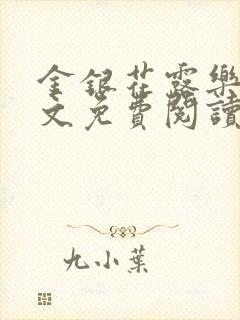 金銀花露樂
文免費閱讀
九小葉